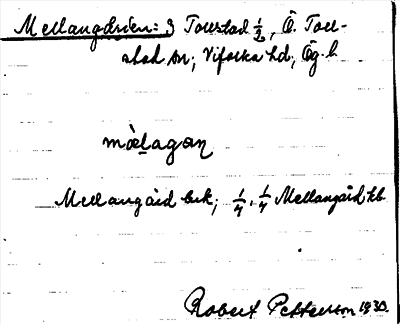 Mellangården: 3 Tollstad 1/2, Ö. Toll-
stad sn; Vifolka hd; Ög. l.
mæ̀lagaɳ
Mellangård bek; 1/4, 1/4 Mellangård hb.
Robert Petterson 1930.